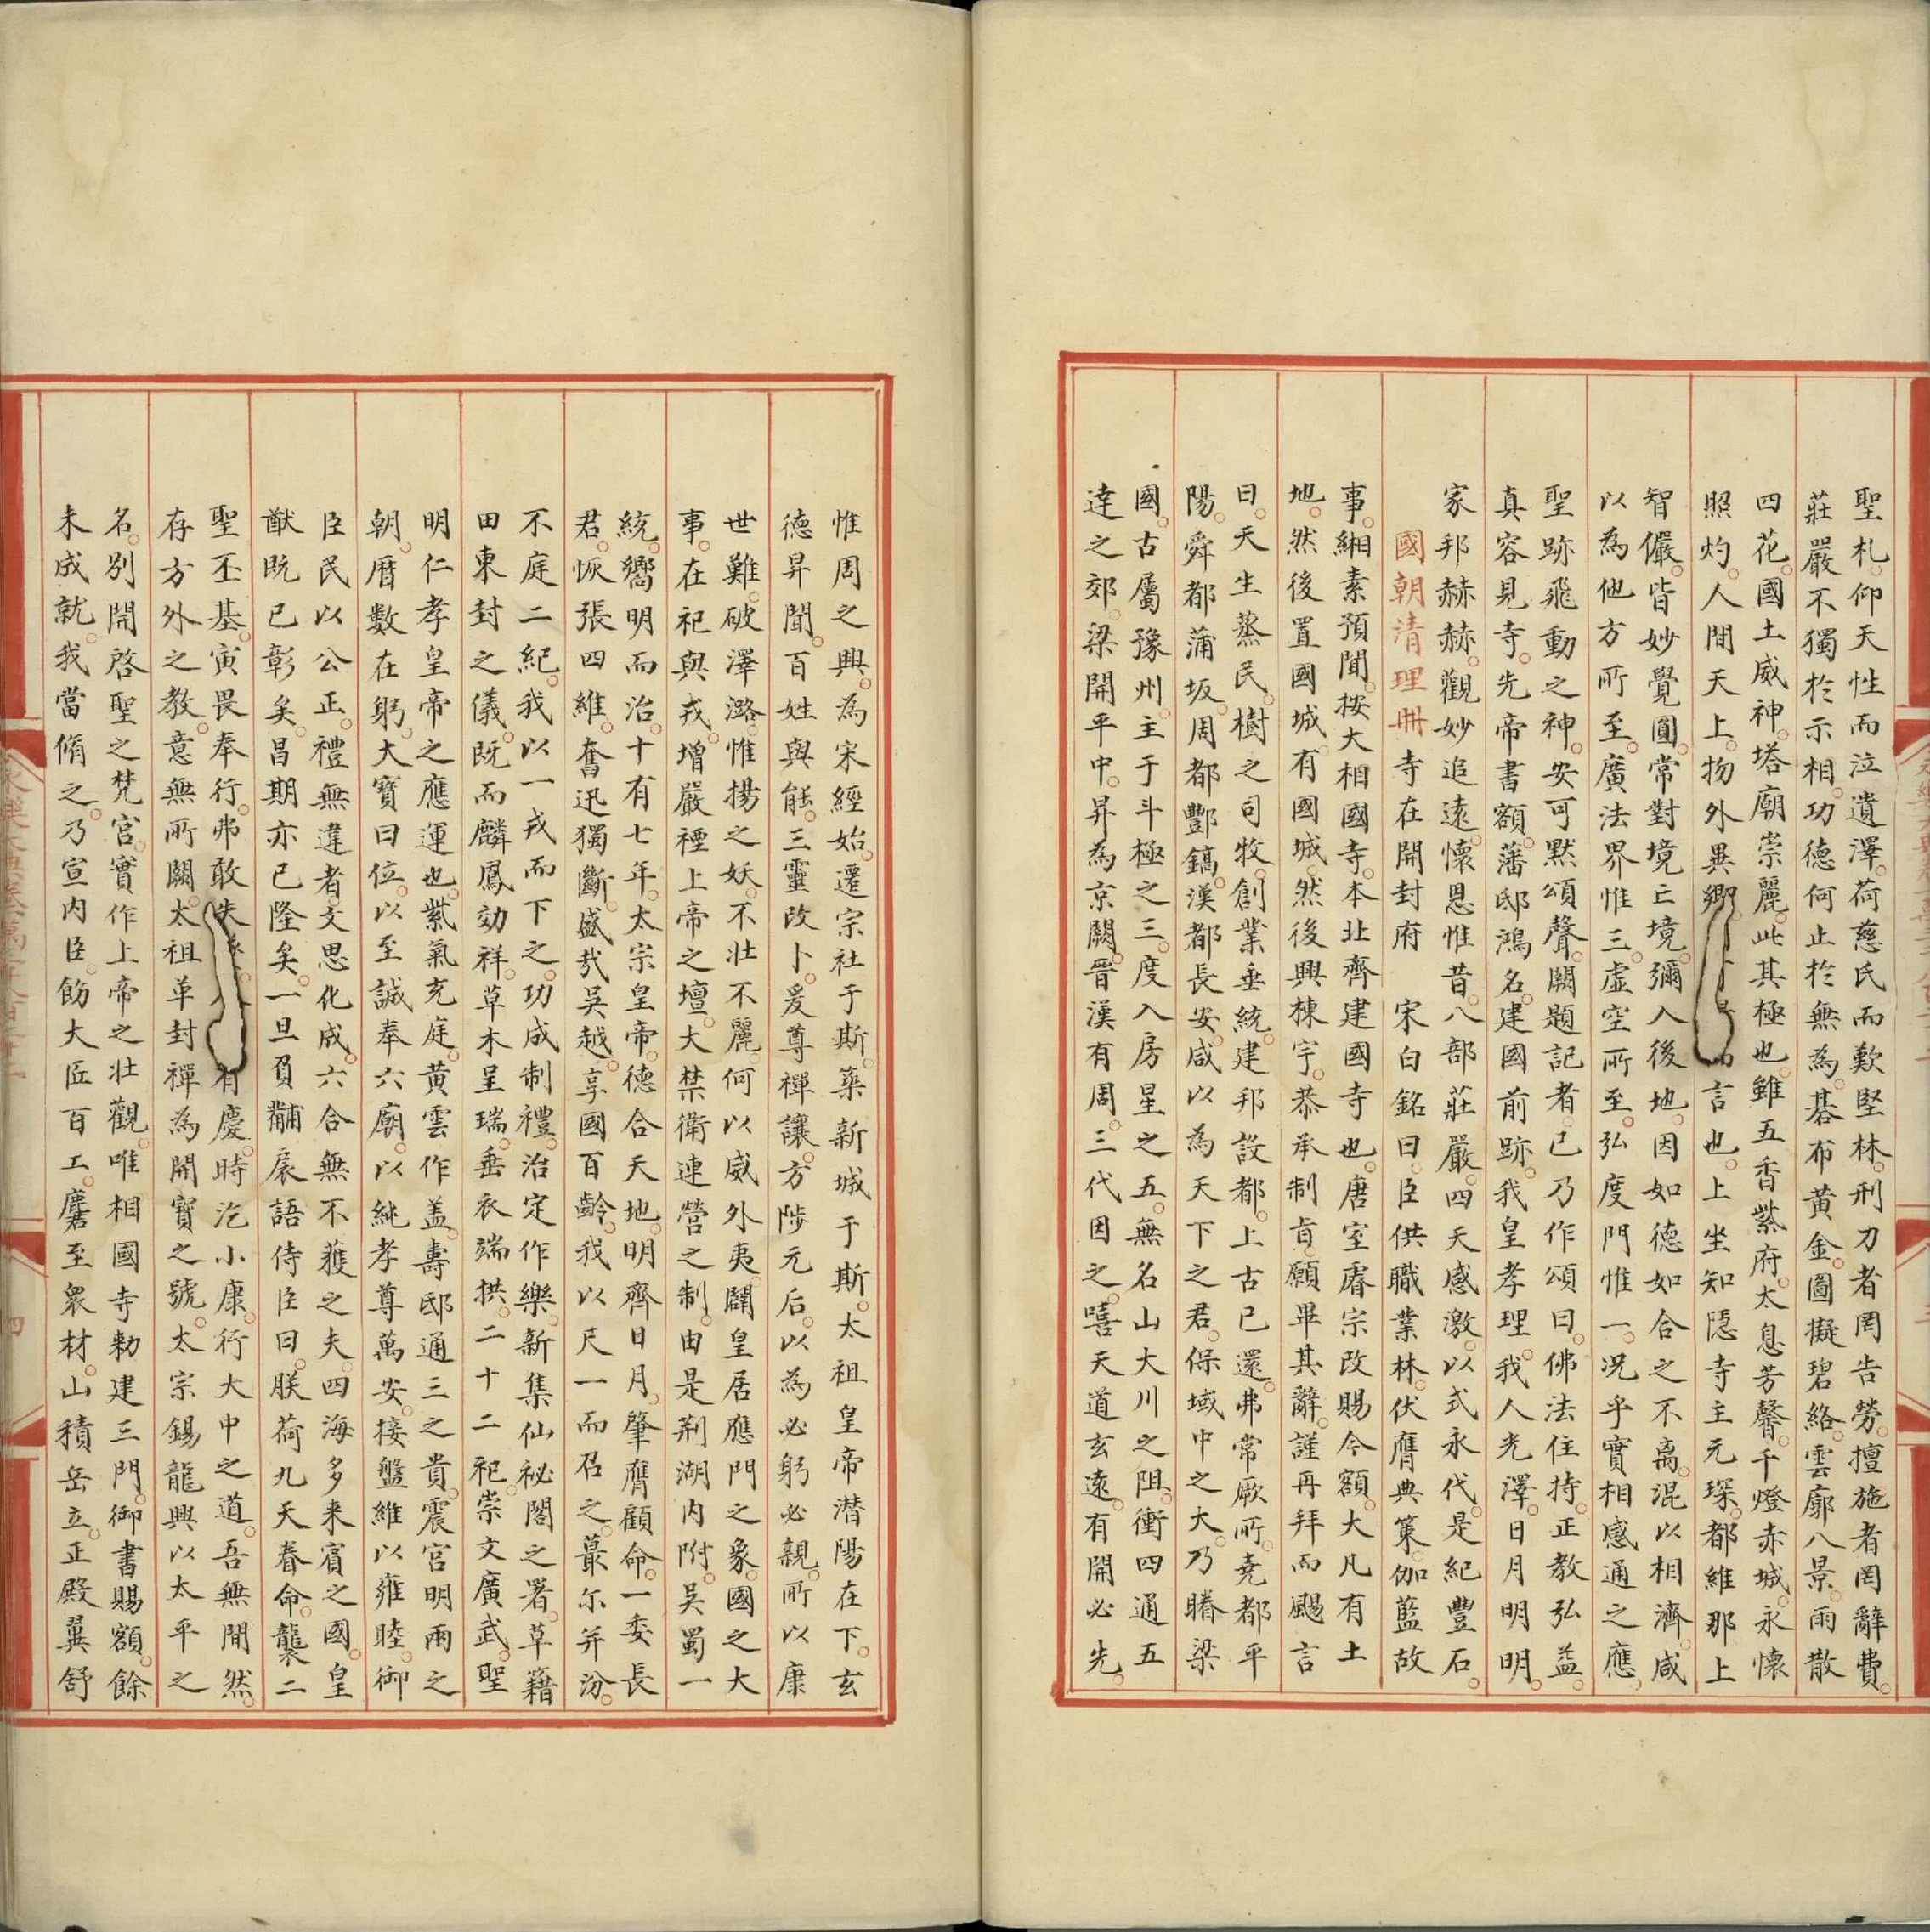 聖札。仰天性而泣遺澤。荷慈氏而歎堅林。刑刀者罔告勞。擅施者罔辭費。
莊嚴不獨於示相。功德何止於無為。碁布黃金。圖擬碧絡。雲廓八景。雨散
四花。國土威神。塔廟崇麗。此其極也。雖五香紫府。太息芳馨。千燈赤城。永懷
照灼。人間天上。物外異鄉。言也。上坐知隱寺主元琛。都維那上
智儼。皆妙覺圓。常對境亡境。彌入後地。因如德如合之不离。混以相濟。咸
以為他方所至。廣法界惟三。虛空所至。弘度門惟一。況乎實相感通之應。
聖跡飛動之神。安可默頌聲。闕題記者。已乃作頌曰。佛法住持。正教弘益。
真容見寺。先帝書額。藩邸鴻名。建國前跡。我皇孝理。我人光澤。日月明明。
家邦赫赫。觀妙追遠。懷恩惟昔。八部莊嚴。四天感激。以式永代。是紀豐石。
國朝清理冊寺在開封府 宋白銘曰。臣供職業林。伏膺典策。伽藍故
事。緗素預聞。按大相國寺。本北齊建國寺也。唐室睿宗改賜今額。大凡有土
地。然後置國城。有國城。然後興棟宇。恭承制旨。願畢其辭。謹再拜而颺言
曰。天生蒸民。樹之司牧。創業垂統。建邦設都。上古已還。弗常厥所。堯都平
陽。舜都蒲坂。周都酆鎬。漢都長安。咸以為天下之君。保域中之大。乃睠梁
國。古屬豫州。主于斗極之三。度入房星之五。無名山大川之阻。衝四通五
達之郊。梁開平中。昇為京闕。晉漢有周。三代因之。嘻天道玄遠。有開必先。
惟周之興。為宋經始。遷宗社于斯。築新城于斯。太祖皇帝潜陽在下。玄
德昇聞。百姓與能。三靈改卜。爰尊禪讓。方陟元后。以為必躬必親。所以康
世難。破澤潞。惟揚之妖。不壯不麗。何以威外夷。闢皇居應門之象。國之大
事。在祀與戎。增嚴禋上帝之壇。大禁衛連營之制。由是荆湖内附。吳蜀一
統。嚮明而治。十有七年。太宗皇帝。德合天地。明齊日月。肇膺顧命。一委長
君。恢張四維。奮迅獨斷。盛㢤吳越。享國百齡。我以尺一而召之。蕞尔并汾。
不庭二紀。我以一戎而下之。功成制禮。治定作樂。新集仙祕閣之署。草籍
田東封之儀。既而麟鳳効祥。草木呈瑞。垂衣端拱。二十二祀。崇文廣武。聖
明仁孝皇帝之應運也。紫氣充庭。黃雲作盖。壽邸通三之貴。震宮明兩之
朝。曆數在躬。大寶曰位。以至誠奉六廟。以純孝尊萬安。接盤維以雍睦。御
臣民以公正。禮無違者。文思化成。六合無不蒦之夫。四海多来賓之國。皇
猷既已彰矣。昌期亦已隆矣。一旦負黼扆語侍臣曰。朕荷九天眷命。襲二
聖丕基。寅畏奉行。弗敢失有慶。時汔小康。行大中之道。吾無間然。
存方外之教。意無所闕。太祖革封禪為開寶之號。太宗錫龍興以太平之
名。别開啓聖之梵宮。實作上帝之壯觀。唯相國寺勑建三門。御書賜額。餘
未成就。我當脩之。乃宣内臣。飭大匠百工。麏至衆材。山積岳立。正殿翼舒